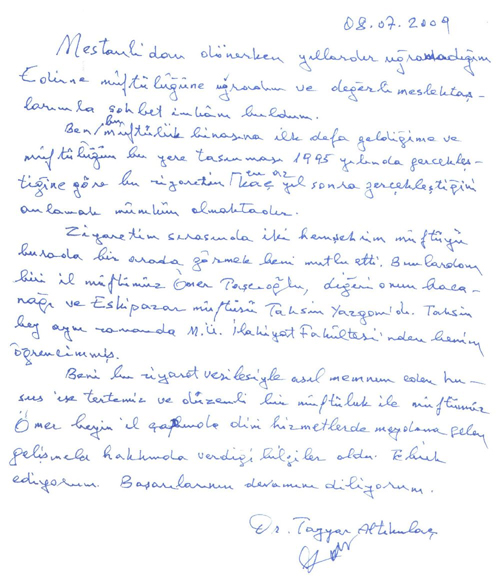 08.07.2009
Mestanlı'dan dönerken yıllardır uğramadığım
Edirne müftülüğüne uğradım ve değerli meslektaş-
larımla sohbet imkânı buldum.
Ben bu müftülük binasına ilk defa geldiğime ve
müftülüğün bu yere taşınması 1995 yılında gerçekleş-
tiğine göre bu ziyaretin en az kaç yıl sonra gerçekleştiğini
anlamak mümkün olmaktadır.
Ziyaretim sırasında iki hemşehrim müftüyü
burada bir arada görmek beni mutlu etti. Bunlardan
biri il müftümüz Ömer Taşcıoğlu, diğeri onun baca-
nağı ve Eskipazar müftüsü Tahsin Yazgan'dı. Tahsin
bey aynı zamanda M.Ü. İlahiyat Fakültesi'nden benim
öğrencimmiş.
Beni bu ziyaret vesilesiyle asıl memnun eden hu-
sus ise tertemiz ve düzenli bir müftülük ile müftümüz
Ömer beyin il çapında dini hizmetlerde meydana gelen
gelişmeler hakkında verdiği bilgiler oldu. Tebrik
ediyorum. Başarılarının devamını diliyorum.
Dr. Tayyar Altıkulaç